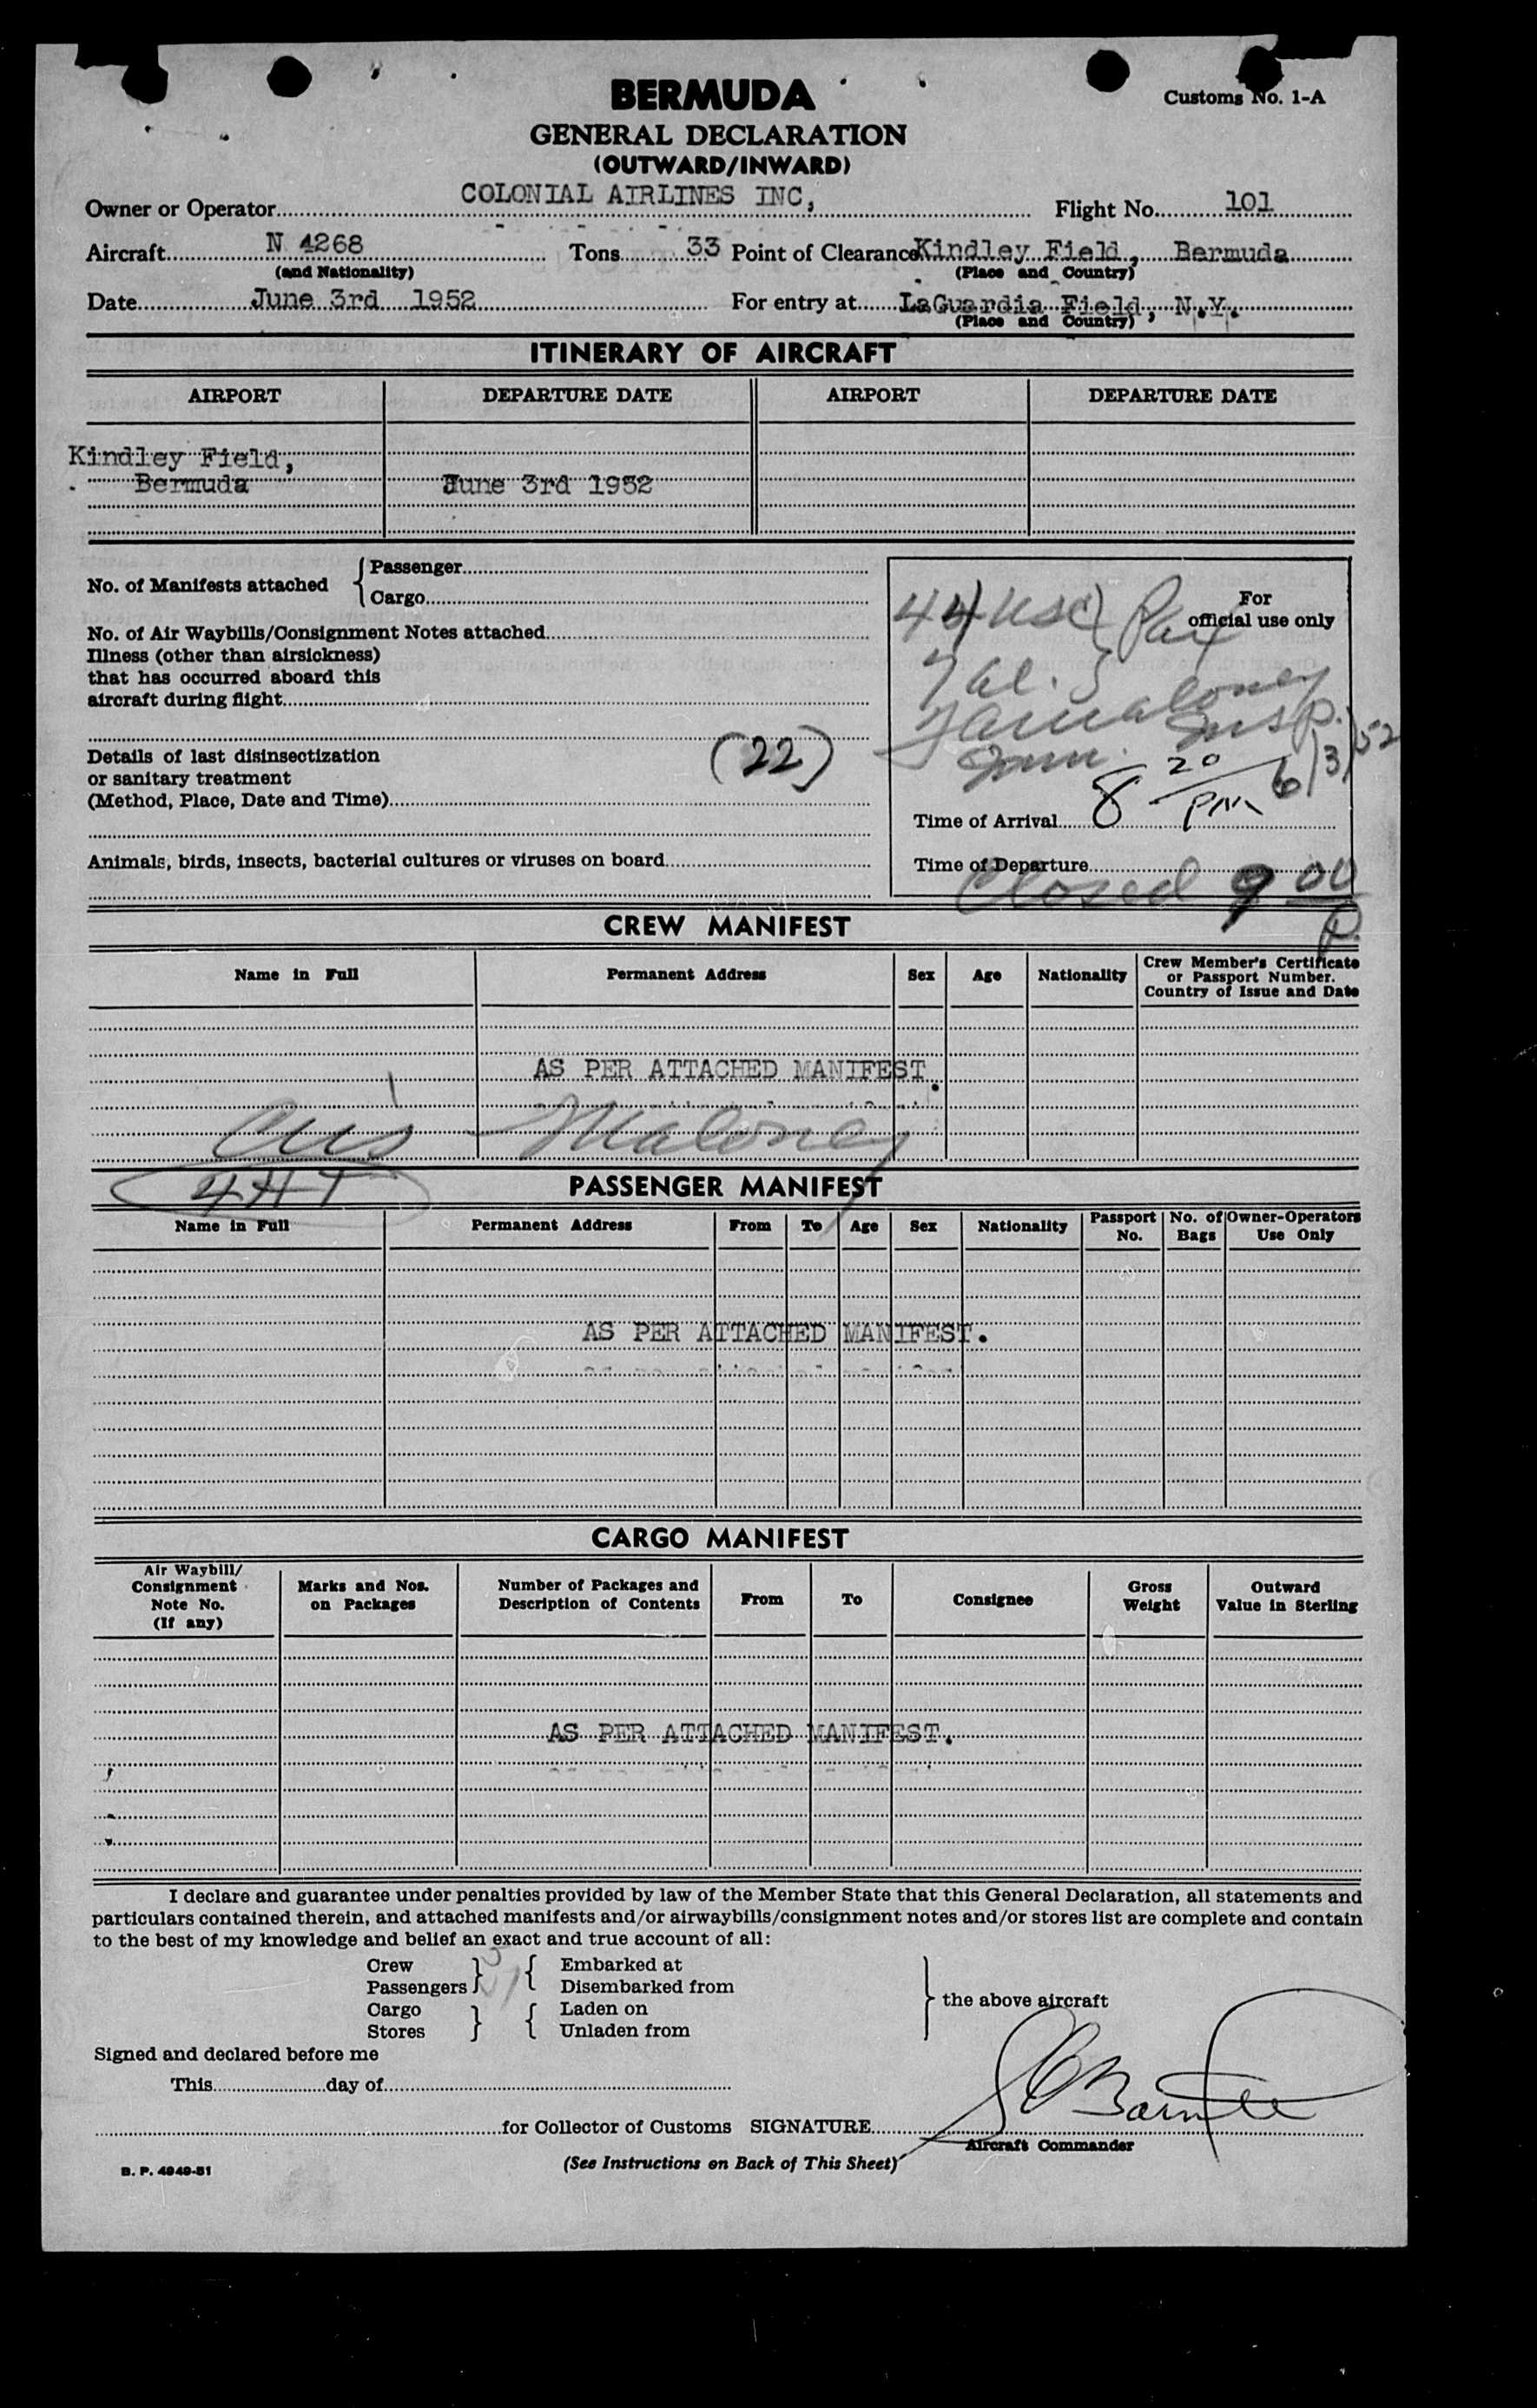 BERMUDA
Customs No. 1-A
GENERAL DECLARATION
(OUTWARD/INWARD)
Owner or Operator COLONIAL AIRLINES INC, Flight No. 101
Aircraft N 4268 Tons 33 Point of Clearance Kindley Field, Bermuda
(and Nationality) (Place and Country)
Date June 3rd 1952 For entry at LaGuardia Field, N.Y.
(Place and Country)
ITINERARY OF AIRCRAFT
AIRPORT DEPARTURE DATE AIRPORT DEPARTURE DATE
Kindley Field,
Bermuda June 3rd 1952
No. of Manifests attached { Passenger
Cargo
No. of Air Waybills/Consignment Notes attached
Illness (other than airsickness)
that has occurred aboard this
aircraft during flight
Details of last disinsectization
or sanitary treatment
(Method, Place, Date and Time)
(22)
Animals, birds, insects, bacterial cultures or viruses on board
For
official use only
44 USC } Pax
7 al. }
Maloney
Imm. Insp.
6/3/52
Time of Arrival 8 20 PM
Time of Departure
Closed 9 00 P.
CREW MANIFEST
Name in Full Permanent Address Sex Age Nationality Crew Member's Certificate
or Passport Number.
Country of Issue and Date
AS PER ATTACHED MANIFEST.
Maloney
PASSENGER MANIFEST
Name in Full Permanent Address From To Age Sex Nationality Passport No. No. of Bags Owner-Operators Use Only
AS PER ATTACHED MANIFEST.
CARGO MANIFEST
Air Waybill/
Consignment
Note No.
(If any) Marks and Nos.
on Packages Number of Packages and
Description of Contents From To Consignee Gross
Weight Outward
Value in Sterling
AS PER ATTACHED MANIFEST.
I declare and guarantee under penalties provided by law of the Member State that this General Declaration, all statements and
particulars contained therein, and attached manifests and/or airwaybills/consignment notes and/or stores list are complete and contain
to the best of my knowledge and belief an exact and true account of all:
Crew } { Embarked at
Passengers Disembarked from
Cargo } { Laden on
Stores Unladen from
} the above aircraft
Signed and declared before me
This day of
for Collector of Customs SIGNATURE
Aircraft Commander
(See Instructions on Back of This Sheet)
B. P. 4949-51